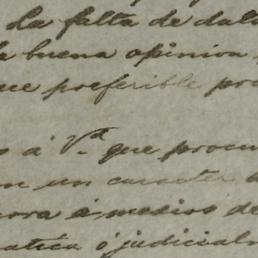 la falta de dat
buena opinion
ue preferible pro
s á V.ª que procu
un caracter
ora á medios de
atica ó judicial